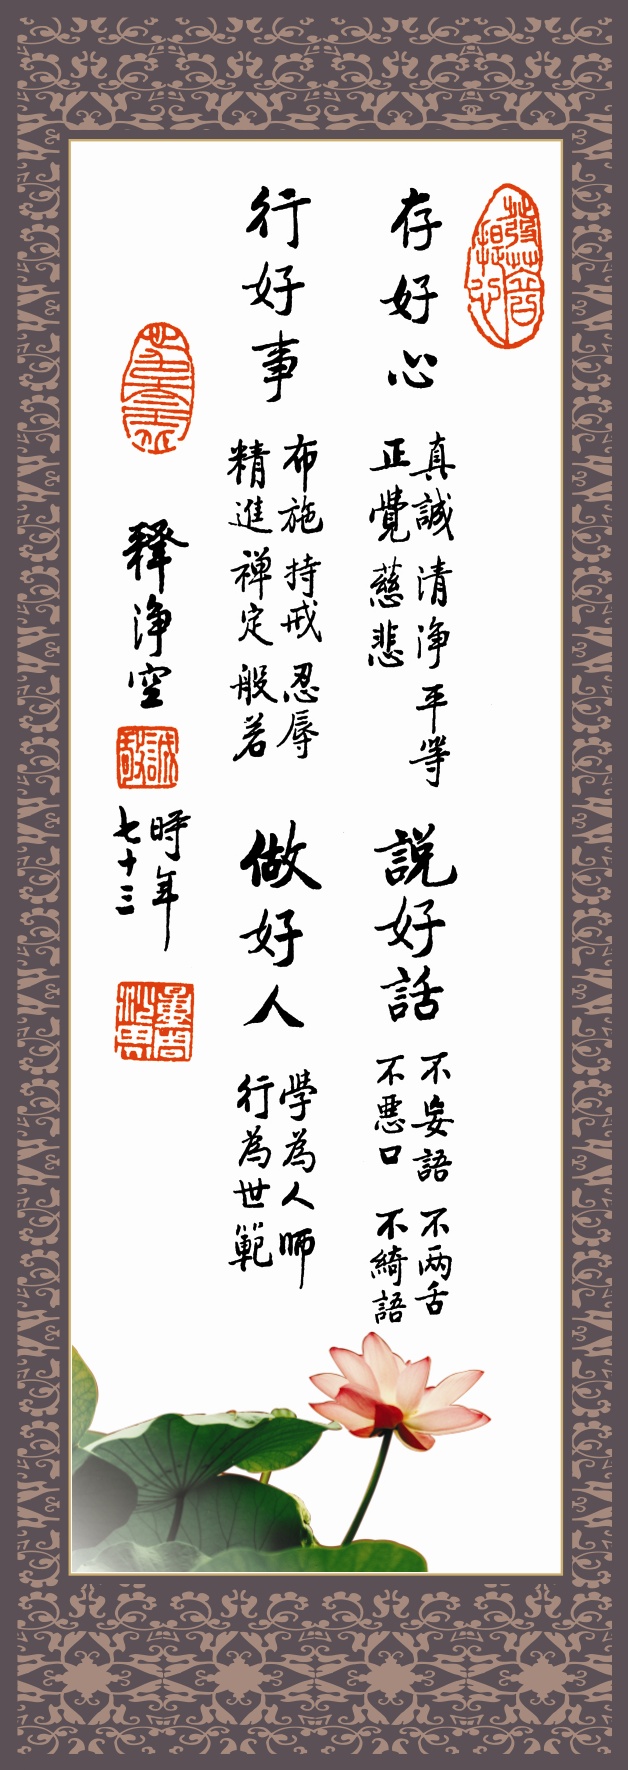 存好心
真誠 清淨 平等
正覺 慈悲
說好話
不妄語 不两舌
不惡口 不綺語
行好事
布施 持戒 忍辱
精進 禅定 般若
做好人
學為人師
行為世範
釋淨空
誠敬
時年
七十三